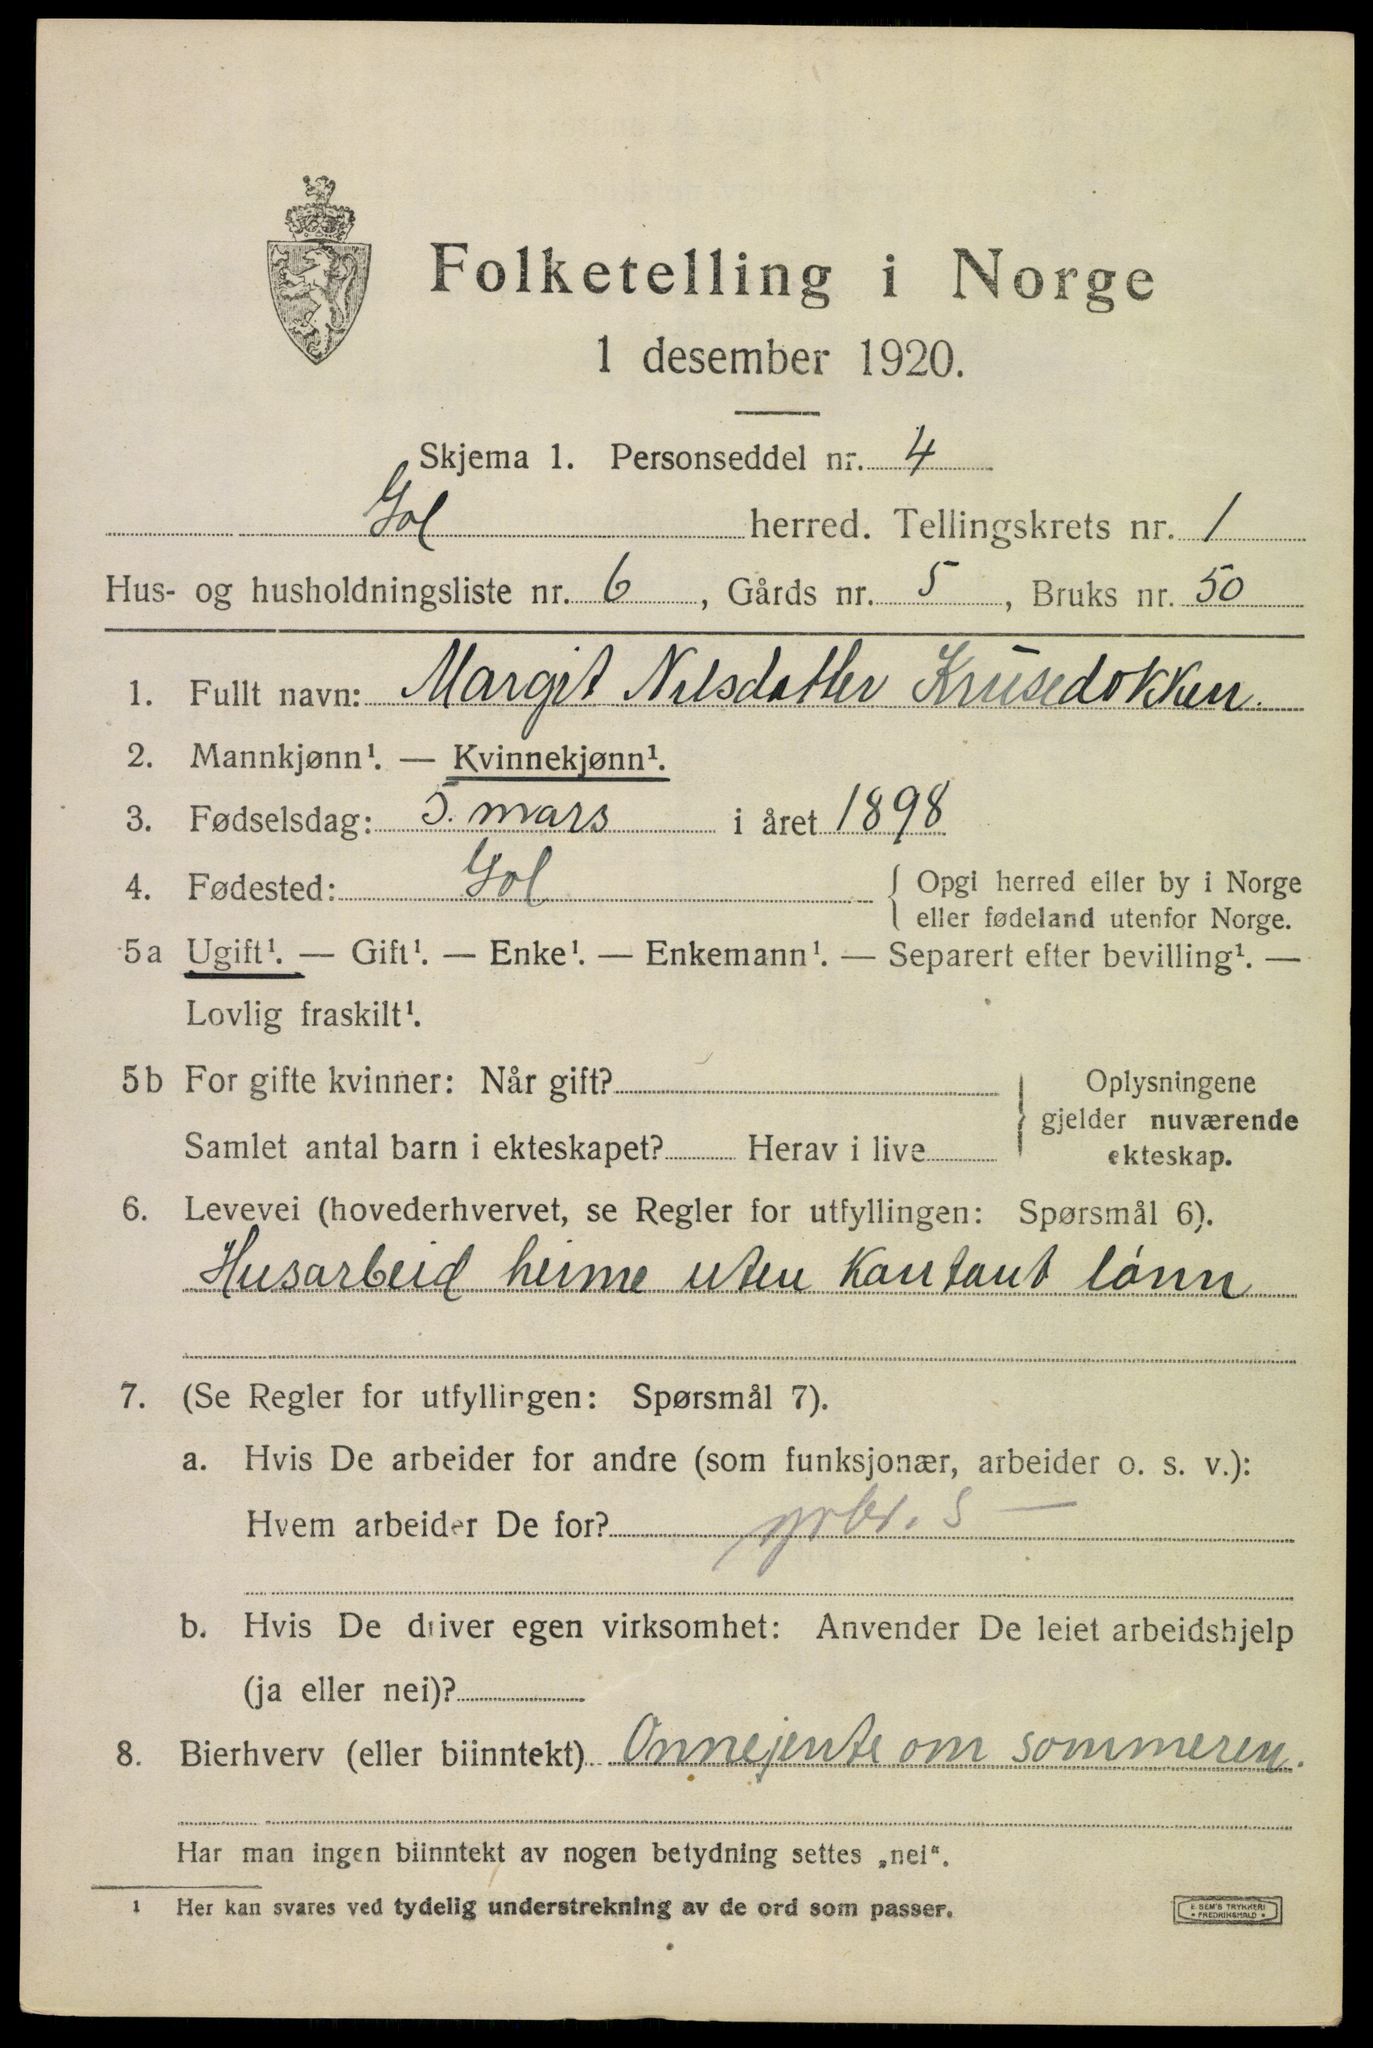 Folketelling i Norge
1 desember 1920.
Skjema 1. Personseddel nr. 4
Gol herred. Tellingskrets nr. 1
Hus- og husholdningsliste nr. 6, Gårds nr. 5, Bruks nr. 50
1. Fullt navn: Margit Nilsdatter Krusedokken.
2. Mannkjønn¹. — Kvinnekjønn¹.
3. Fødselsdag: 5. mars i året 1898
4. Fødested: Gol { Opgi herred eller by i Norge
eller fødeland utenfor Norge.
5a Ugift¹. — Gift¹. — Enke¹. — Enkemann¹. — Separert efter bevilling¹. —
Lovlig fraskilt¹.
5b For gifte kvinner: Når gift?
Samlet antal barn i ekteskapet? Herav i live
Oplysningene
gjelder nuværende
ekteskap.
6. Levevei (hovederhvervet, se Regler for utfyllingen: Spørsmål 6).
Husarbeid heime uten kontant lønn
7. (Se Regler for utfyllingen: Spørsmål 7).
a. Hvis De arbeider for andre (som funksjonær, arbeider o. s. v.):
Hvem arbeider De for?
b. Hvis De driver egen virksomhet: Anvender De leiet arbeidshjelp
(ja eller nei)?
8. Bierhverv (eller biinntekt) Onnejente om sommeren.
Har man ingen biinntekt av nogen betydning settes „nei".
1 Her kan svares ved tydelig understrekning av de ord som passer.
E. SEM'S TRYKKERI
FREDRIKSHALD